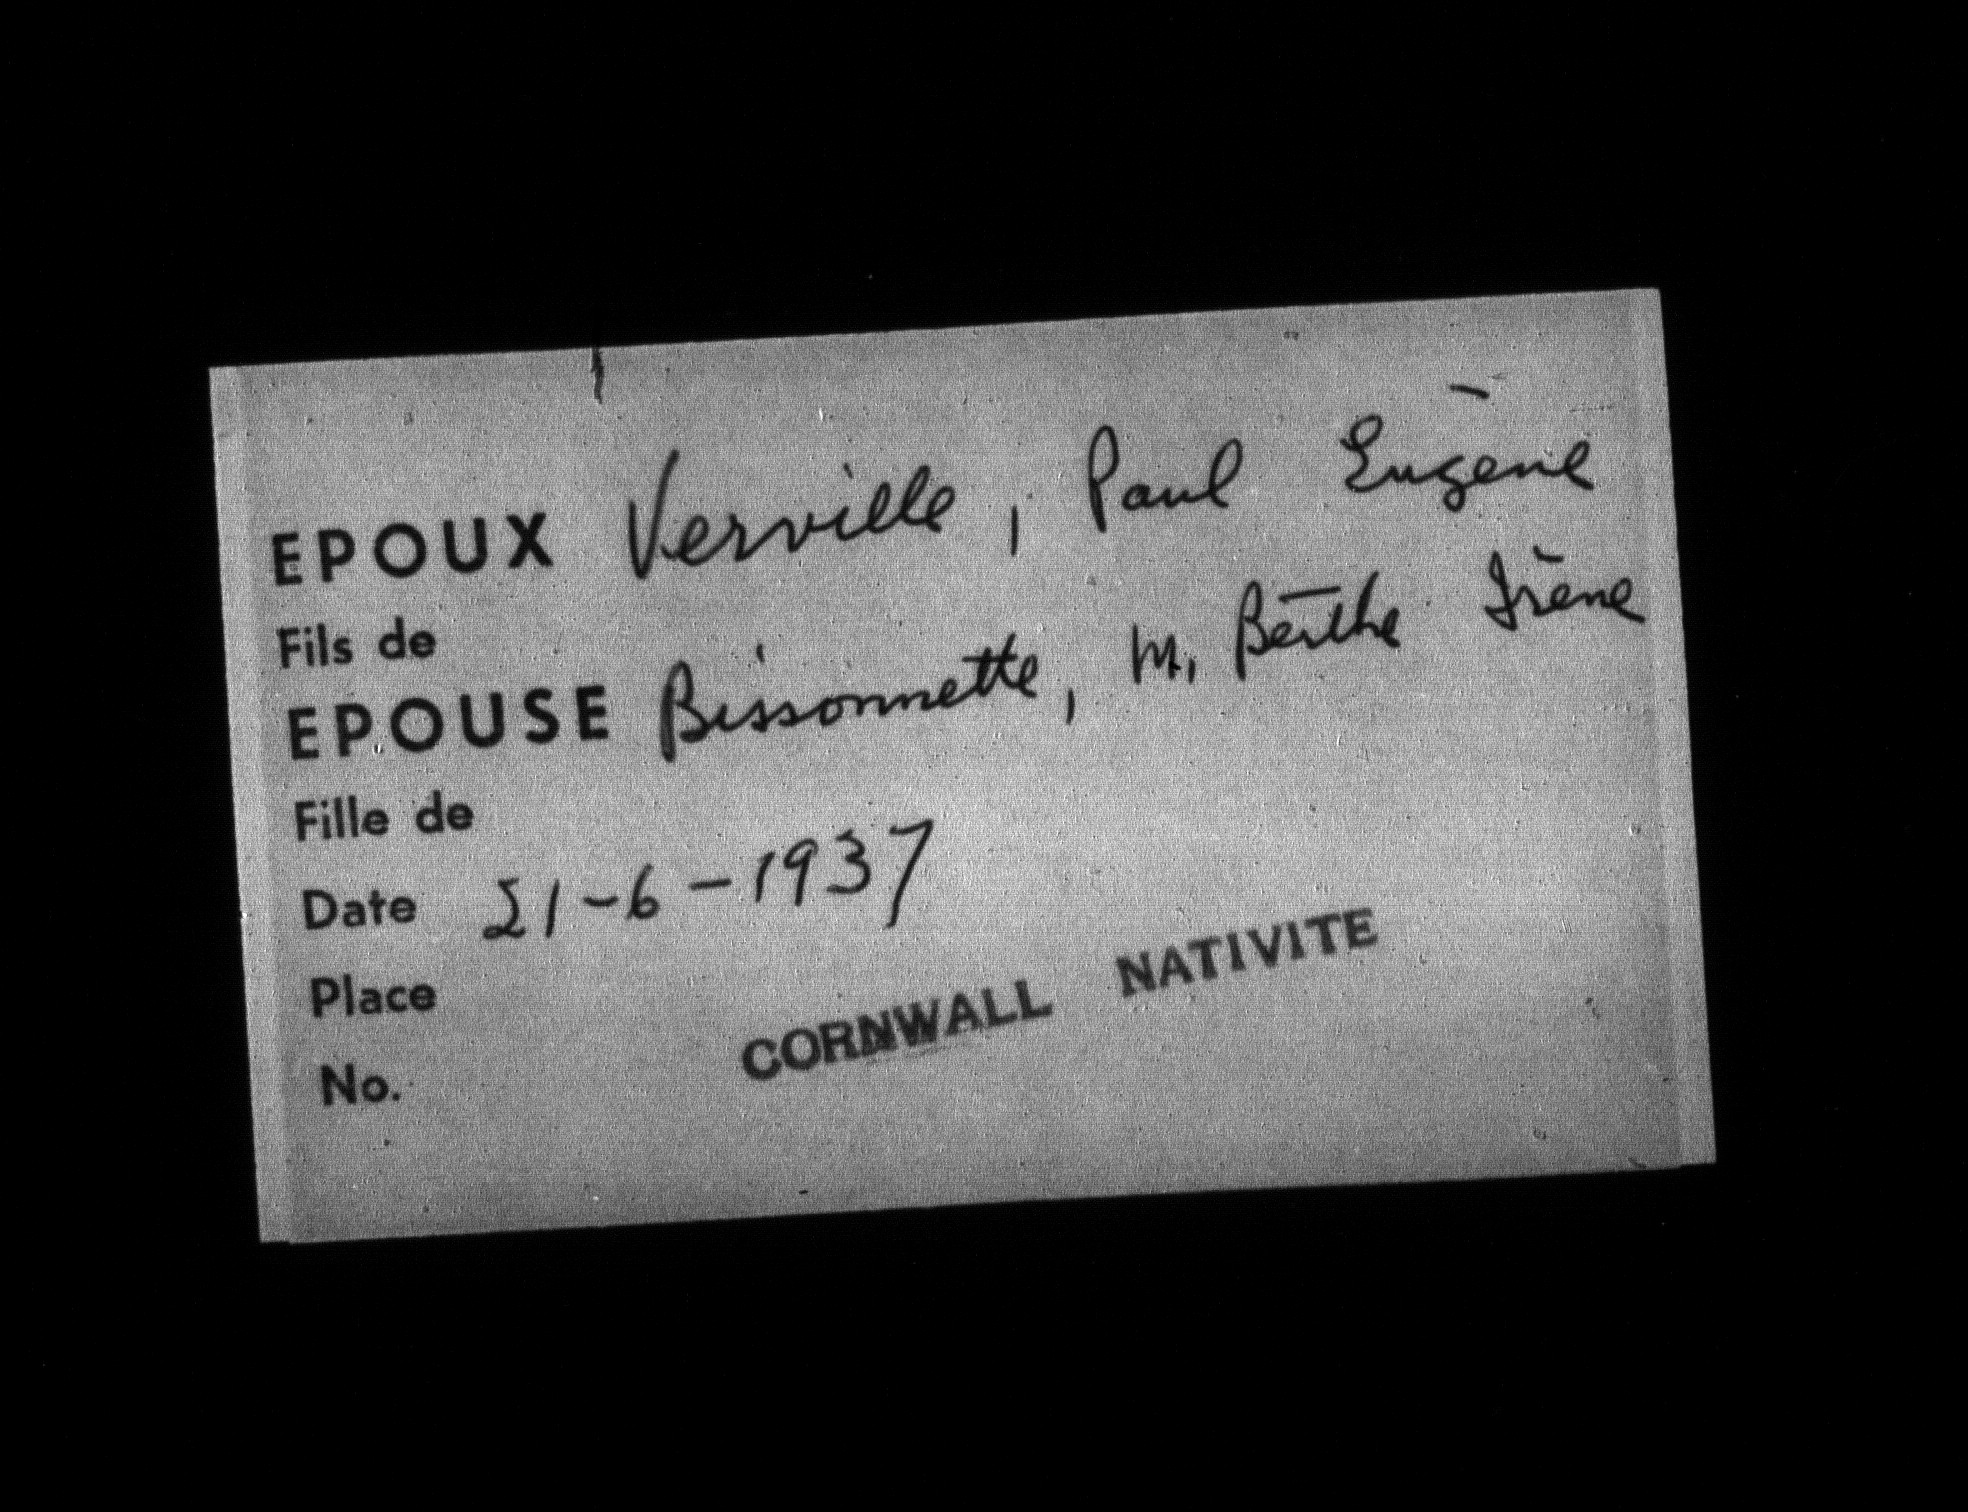 EPOUX Verville, Paul Eugène
Fils de
EPOUSE Bissonnette, M. Berthe Irène
Fille de
Date 21-6-1937
Place
CORNWALL NATIVITE
No.